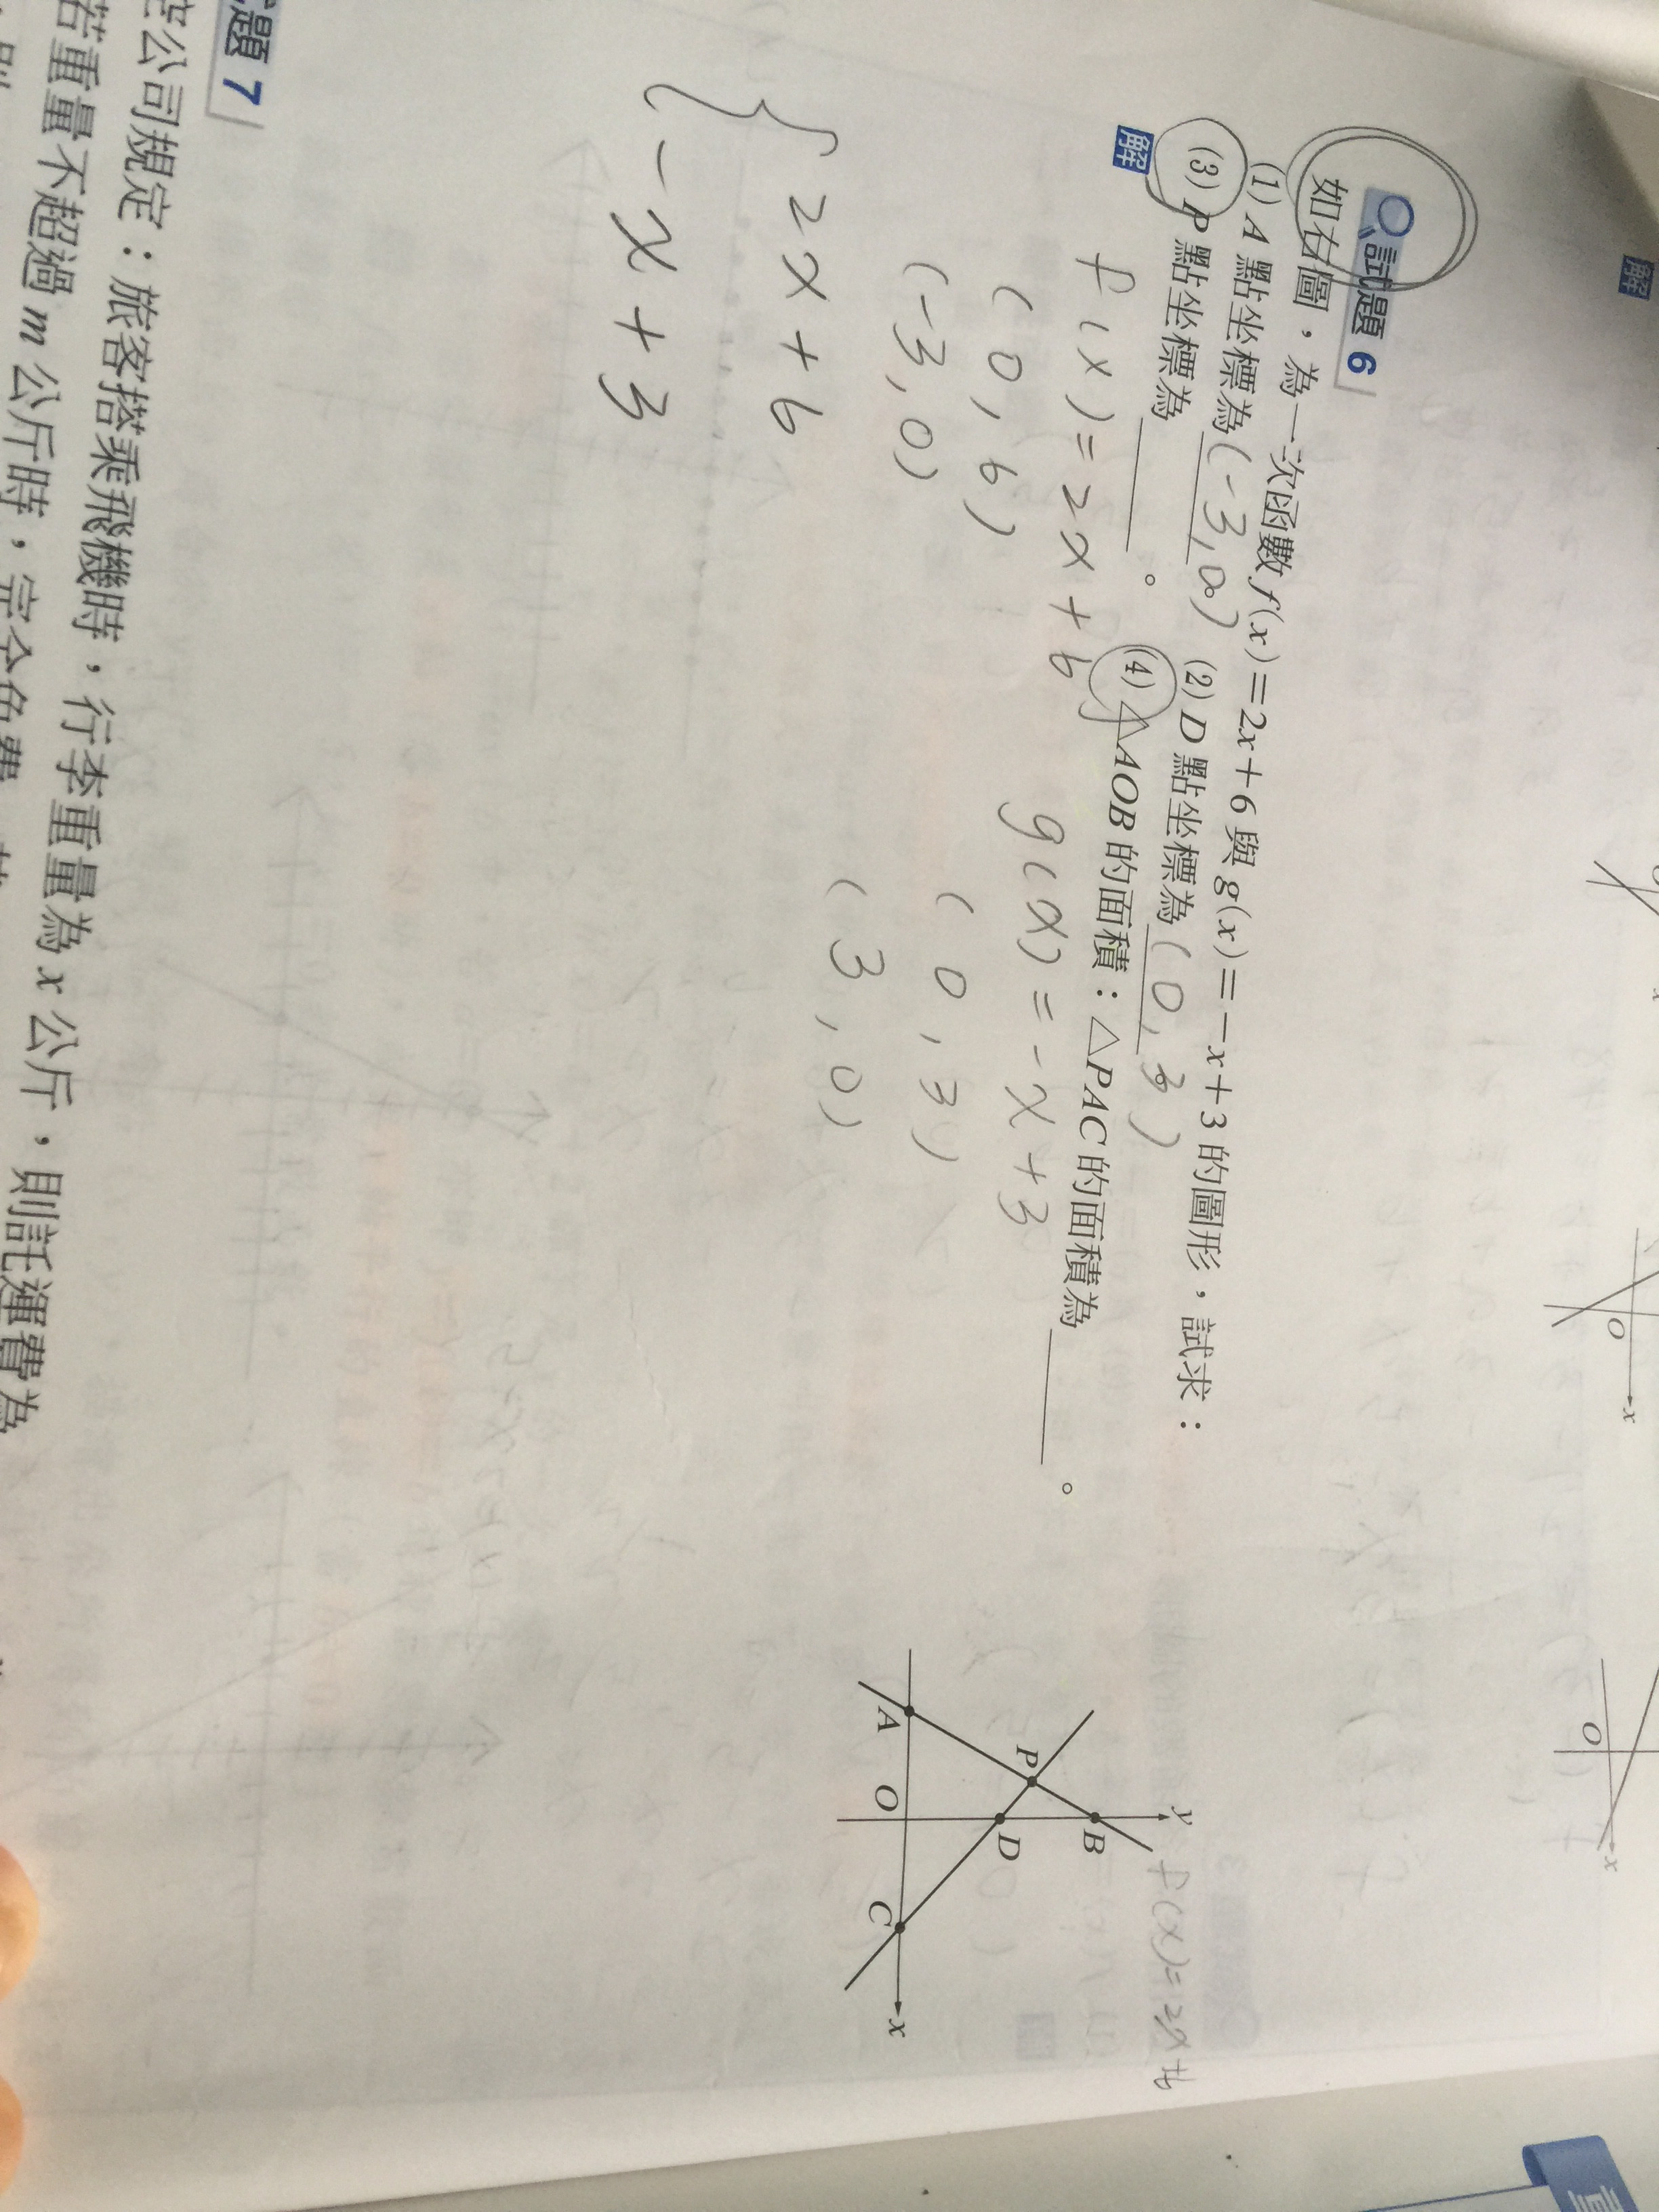 解
x
O
x
O
x
試題 6
如右圖，為一次函數 f(x)=2x+6 與 g(x)=-x+3 的圖形，試求：
(1) A 點坐標為(-3,0) (2) D 點坐標為(0,3)
(3) P 點坐標為＿＿＿。 (4) △AOB 的面積：△PAC 的面積為＿＿＿。
解
f(x)=2x+6 g(x)=-x+3
(0,6) (0,3)
(-3,0) (3,0)
{ 2x+6
-x+3
f(x)=2x+6
y
B
P
D
A
O
C
x
題 7
公司規定：旅客搭乘飛機時，行李重量為 x 公斤，則託運費為
若重量不超過 m 公斤時，完全免費